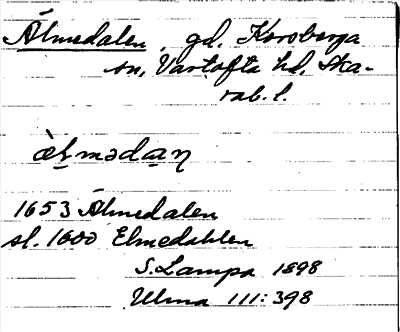 Älmedalen, gd. Korsberga
sn, Vartofta hd. Ska-
rab. l.
1653 Älmedalen
sl. 1600 Elmedahlen
S. Lampa 1898
Ulma 111:398